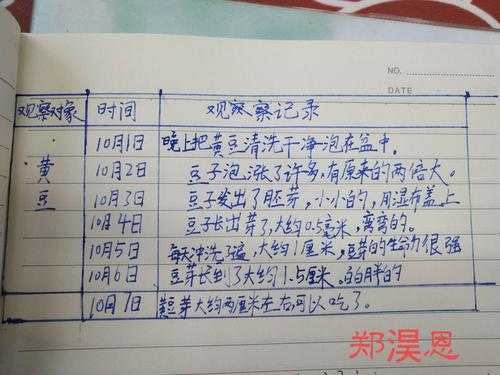 NO.
DATE
观察对象 时间 观察察记录
10月1日 晚上把黄豆清洗干净泡在盆中。
黄 10月2日 豆子泡涨了许多,有原来的两倍大。
豆 10月3日 豆子发出了胚芽,小小的,用湿布盖上
10月4日 豆子长出芽了,大约0.5毫米,弯弯的。
10月5日 每天冲洗了遍,大约1厘米,豆芽的生命力很强
10月6日 豆芽长到了大约1.5厘米。白白胖的
10月7日 黄豆芽大约两厘米左右可以吃了。
郑淏恩